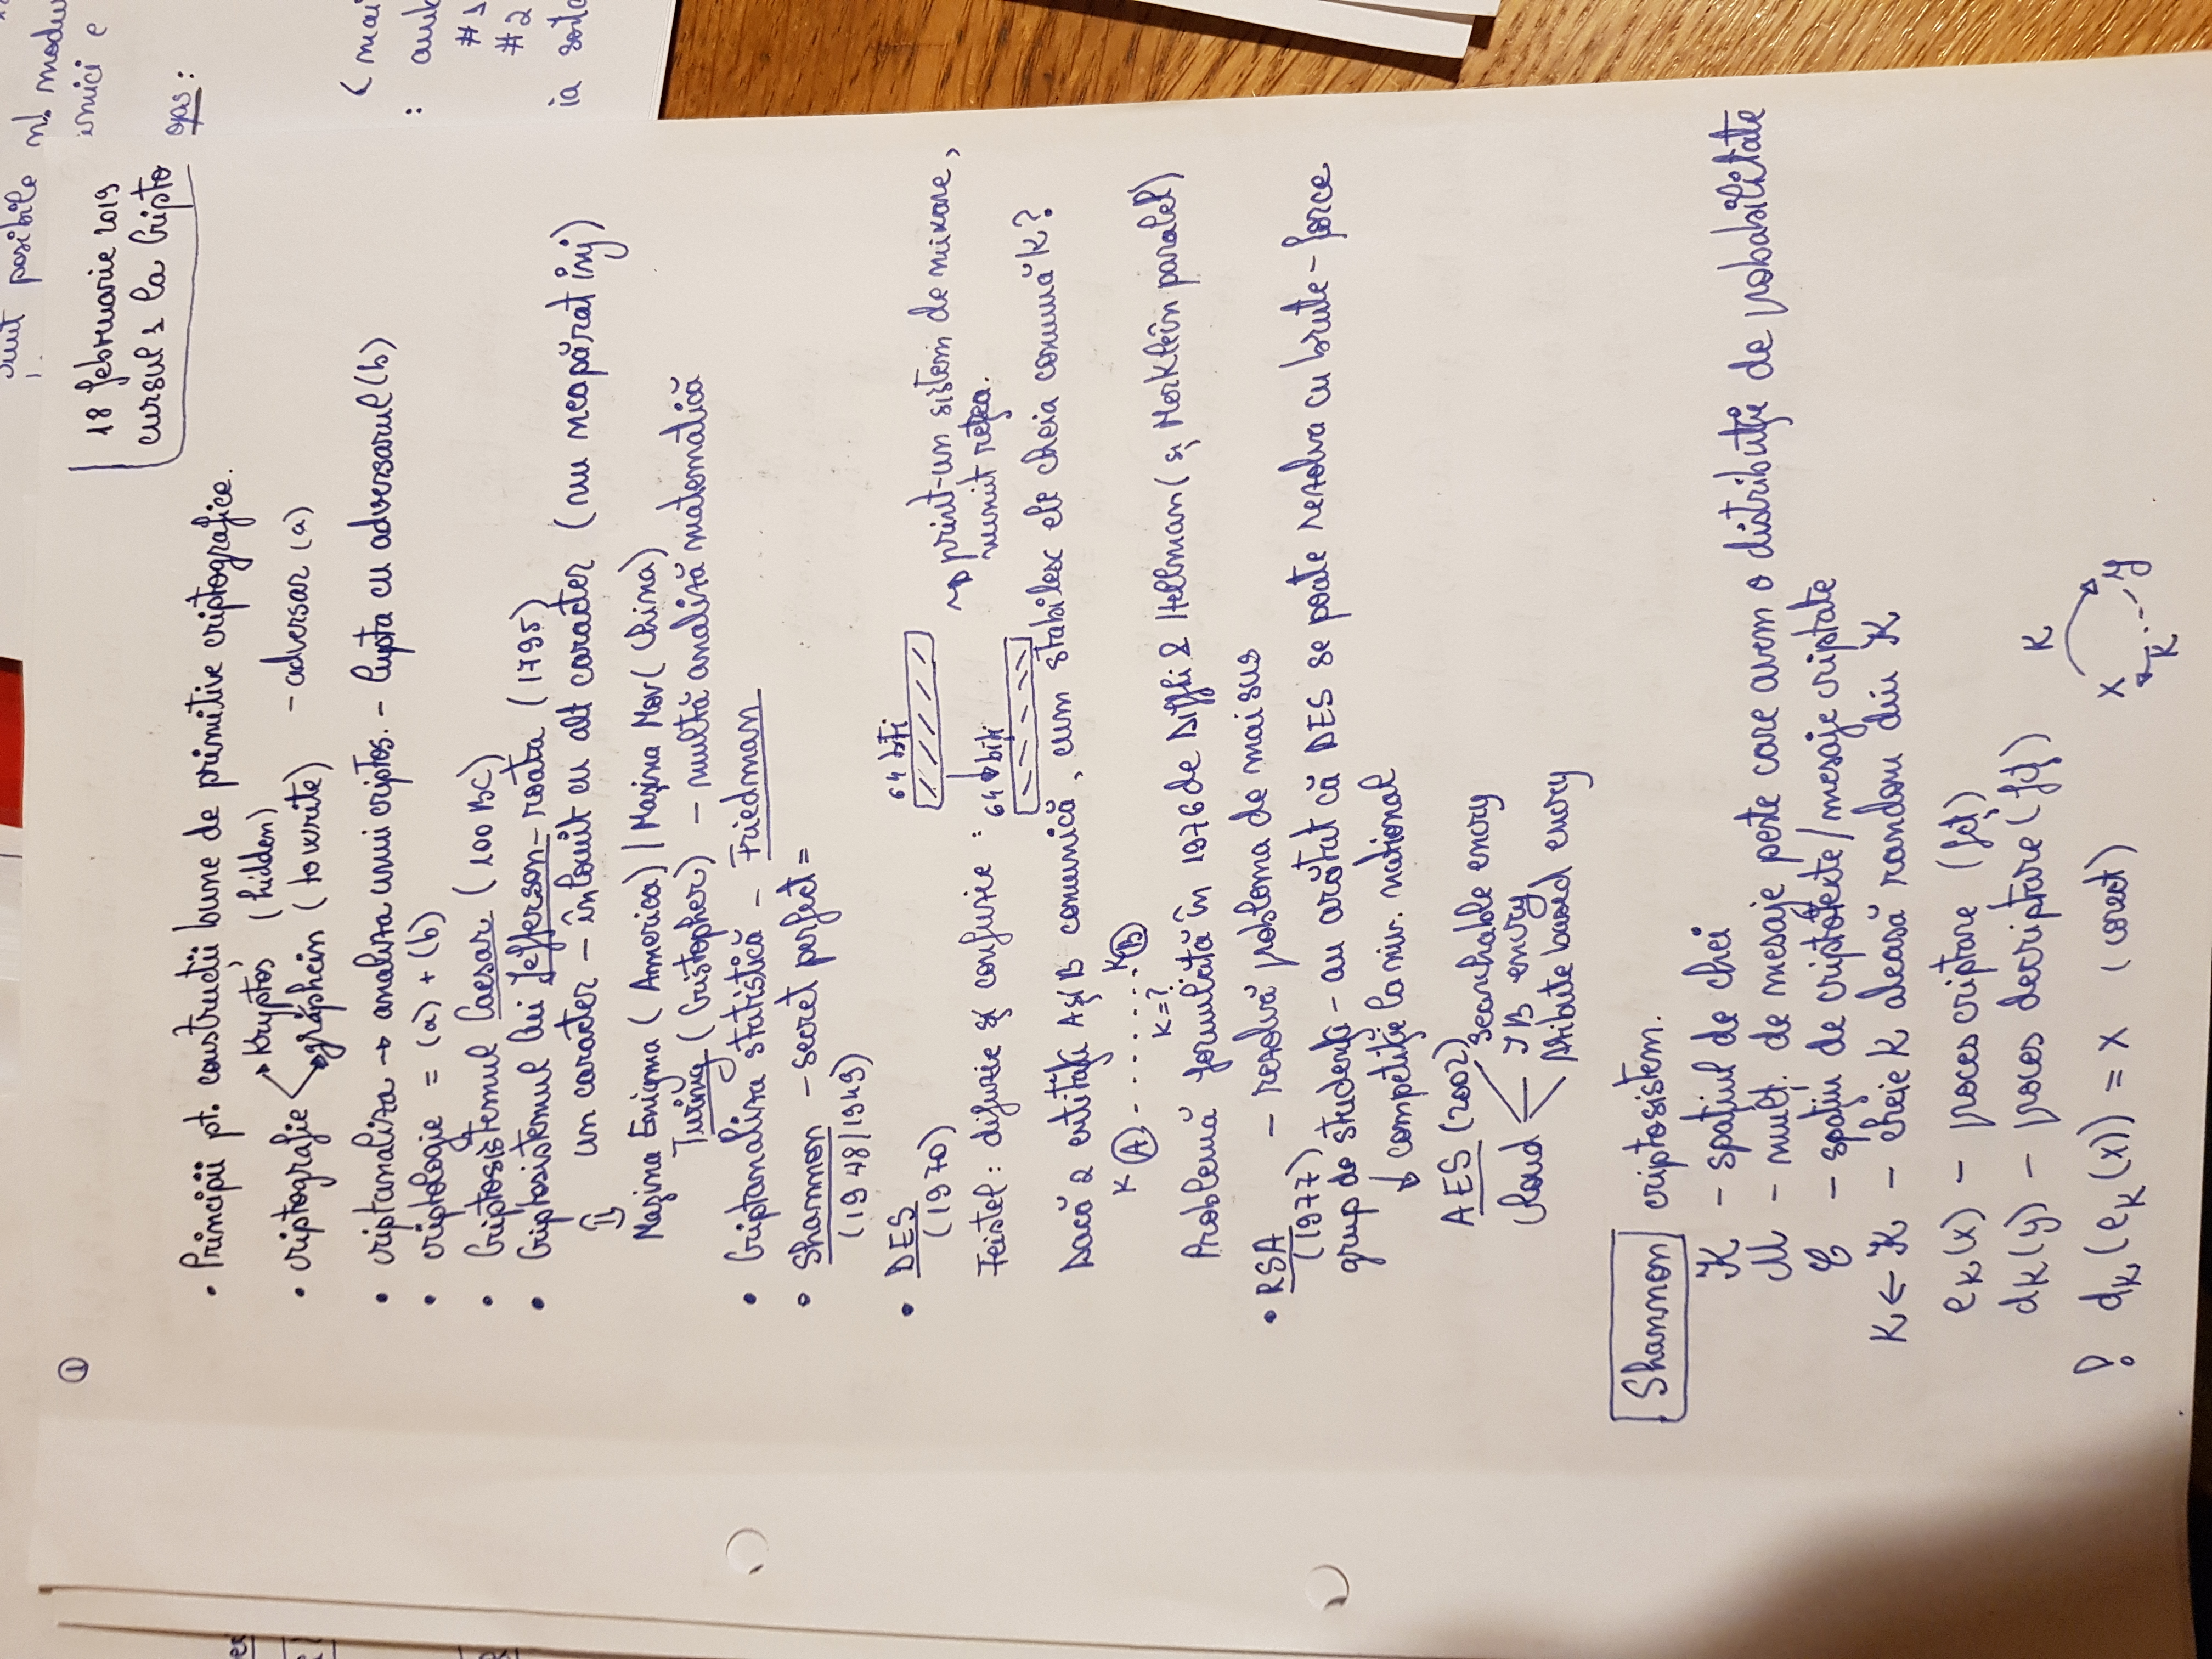 sunt posibile nr. modu
amici e
①
18 februarie 2019
cursul 1 la Cripto
ops:
• Principii pt. construcții bune de primitive criptografice.
• criptografie
Kryptos (hidden)
graphein (to write)
- adversar (a)
• criptanaliza → analiza unui criptos. - lupta cu adversarul (b)
• criptologie = (a) + (b)
• Criptosistemul Caesar (100 BC)
• Criptosistemul lui Jefferson - roata (1795)
⇓ un caracter - înlouit cu alt caracter (nu neapărat inj)
Mașina Enigma (America) | Mașina Mov (China)
Turing (Cristopher) - multă analiză matematică
• Criptanaliza statistică - Friedman
• Shannon - secret perfect =
(1948/1949)
• DES
(1970)
64 biți
Feistel: difuzie și confuzie :
64 biți
→ print-un sistem de mixare,
numit rețea.
Dacă 2 entități A și B comunică, cum stabilesc ele cheia comună K?
K A - . . . . . . K B
K=?
Problemă formulată în 1976 de Diffli & Hellman (și Merkle în paralel)
• RSA - rezolvă probloma de mai sus
(1977)
grup de studenți - au arătat că DES se poate rezolva cu brute-force
↓ competiție la niv. național
AES (2002)
Cloud
Searchable encry
IB encry
Atibute based encry
Shannon criptosistem.
K - spațiul de chei
M - mulț. de mesaje peste care avem o distribuție de probabilitate
C - spațiu de criptotexte/mesaje criptate
K ← K - cheie K aleasă random din K
e_K(x) - proces criptare (fcț)
d_K(y) - proces decriptare (fcț)
! d_K(e_K(x)) = x (corect)
K
x y
K
< mai
: amb
#1
#2
ia